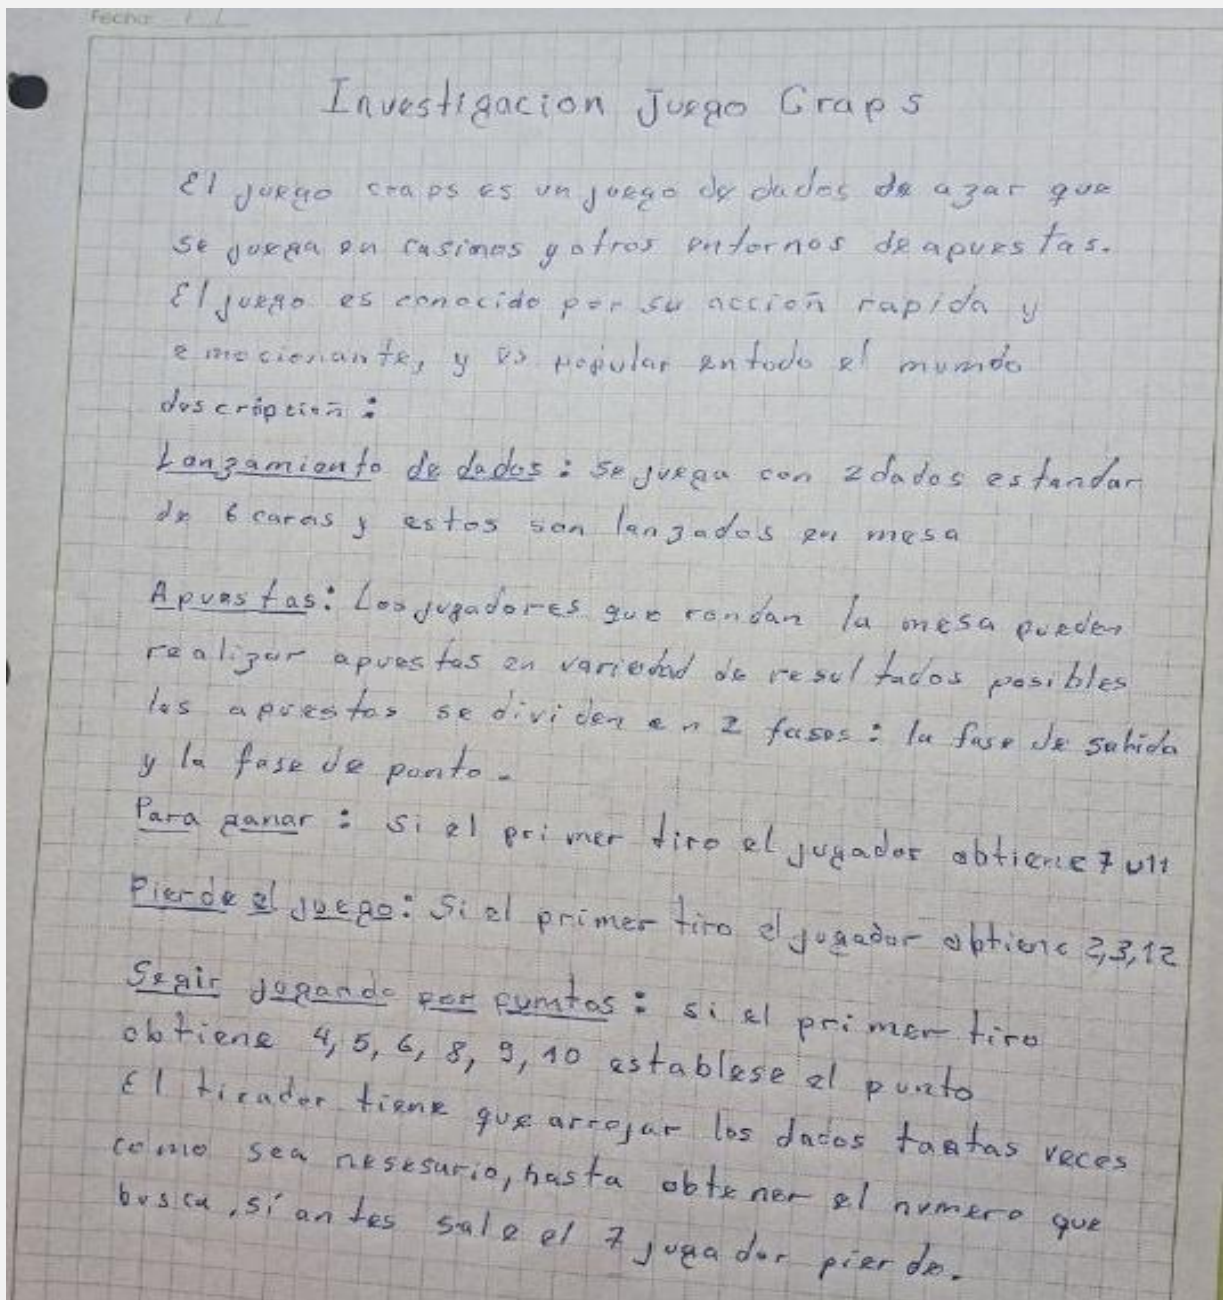 Fecha: / /
Investigacion Juego Craps
El juego craps es un juego de dados de azar que
se juega en casinos y otros entornos de apuestas.
El juego es conocido por su acción rapida y
emocionante, y es popular en todo el mumdo
descripción:
Lanzamiento de dados: se juega con 2 dados estandar
de 6 caras y estos son lanzados en mesa
Apuestas: Los jugadores que rondan la mesa pueden
realizar apuestas en variedad de resultados posibles
las apuestas se dividen en 2 fases: la fase de salida
y la fase de punto.
Para ganar: si el primer tiro el jugador obtiene 7 u 11
Pierde el juego: Si el primer tiro el jugador obtiene 2,3,12
Segir jugando por pumtos: si el primer tiro
obtiene 4, 5, 6, 8, 9, 10 establese el punto
El tirador tiene que arrojar los dados tantas veces
como sea nesesario, hasta obtener el numero que
busca, si antes sale el 7 jugador pierde.